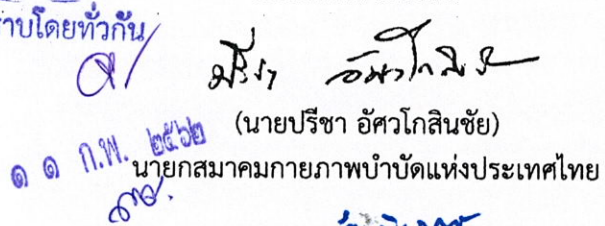 าบโดยทั่วกัน
ปรีชา อัศวโกสินชัย
(นายปรีชา อัศวโกสินชัย)
๑ ๑ ก.พ. ๒๕๖๒
นายกสมาคมกายภาพบำบัดแห่งประเทศไทย